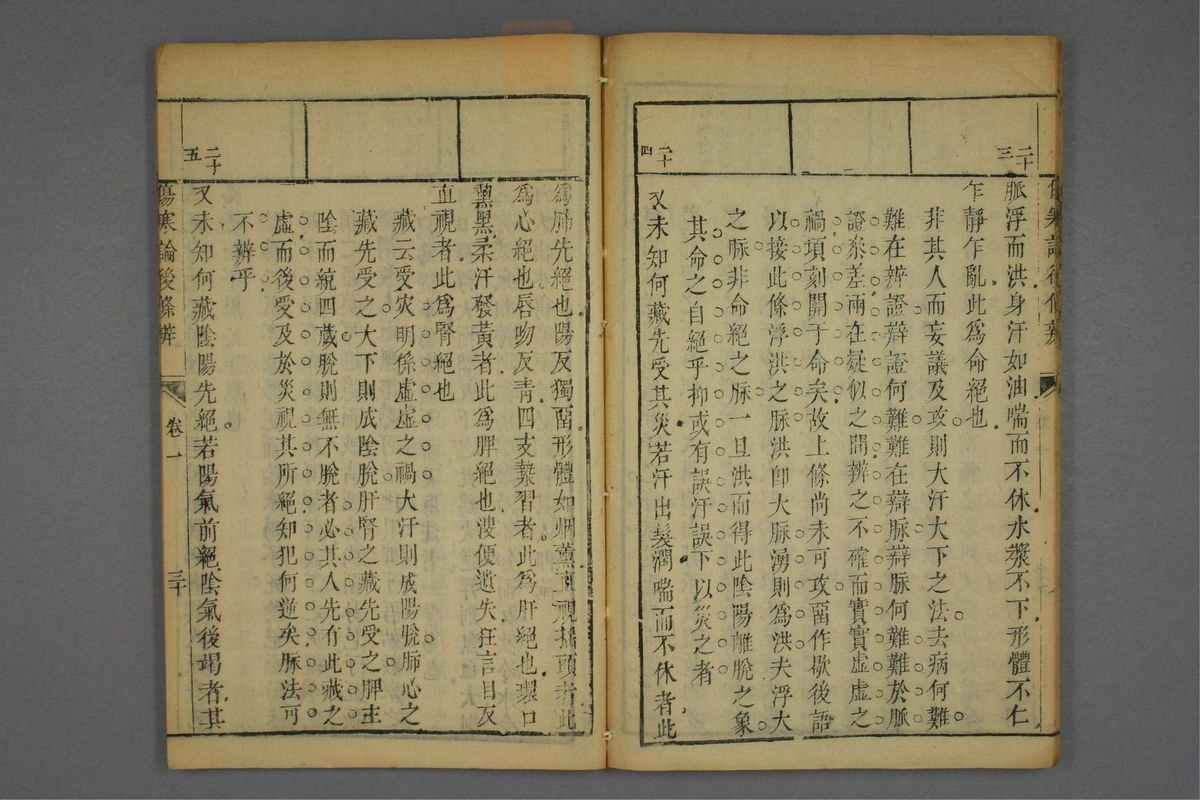 二十三
脈浮而洪身汗如油喘而不休水漿不下形體不仁
乍靜乍亂此爲命絕也
非其人而妄議及攻則大汗大下之法去病何難
難在辨證辯證何難難在辯脉辯脉何難難於脈
證叅差兩在疑似之間辨之不確而實實虛虛之
禍項刻關于命矣故上條尚未可攻畱作歇後語
以接此條浮洪之脉洪卽大脉湧則爲洪夫浮大
之脉非命絕之脉一旦洪而得此陰陽離脫之象
其命之自絕乎抑或有誤汗誤下以災之者
二十四
又未知何藏先受其災若汗出髮潤喘而不休者此
爲肺先絕也陽反獨畱形體如烟薰直視摇頭者此
爲心絕也唇吻反青四支漐習者此爲肝絕也環口
黧黑柔汗發黃者此爲脾絕也溲便遺失狂言目反
直視者此爲腎絕也
藏云受灾明係虛虛之禍大汗則成陽脫肺心之
藏先受之大下則成陰脫肝腎之藏先受之脾主
陰而統四藏脫則無不脫者必其人先有此藏之
虛而後受及於災視其所絕知犯何逆矣脈法可
不辨乎
二十五
又未知何藏陰陽先絕若陽氣前絕陰氣後竭者其
傷寒論後條辨
卷一
三十